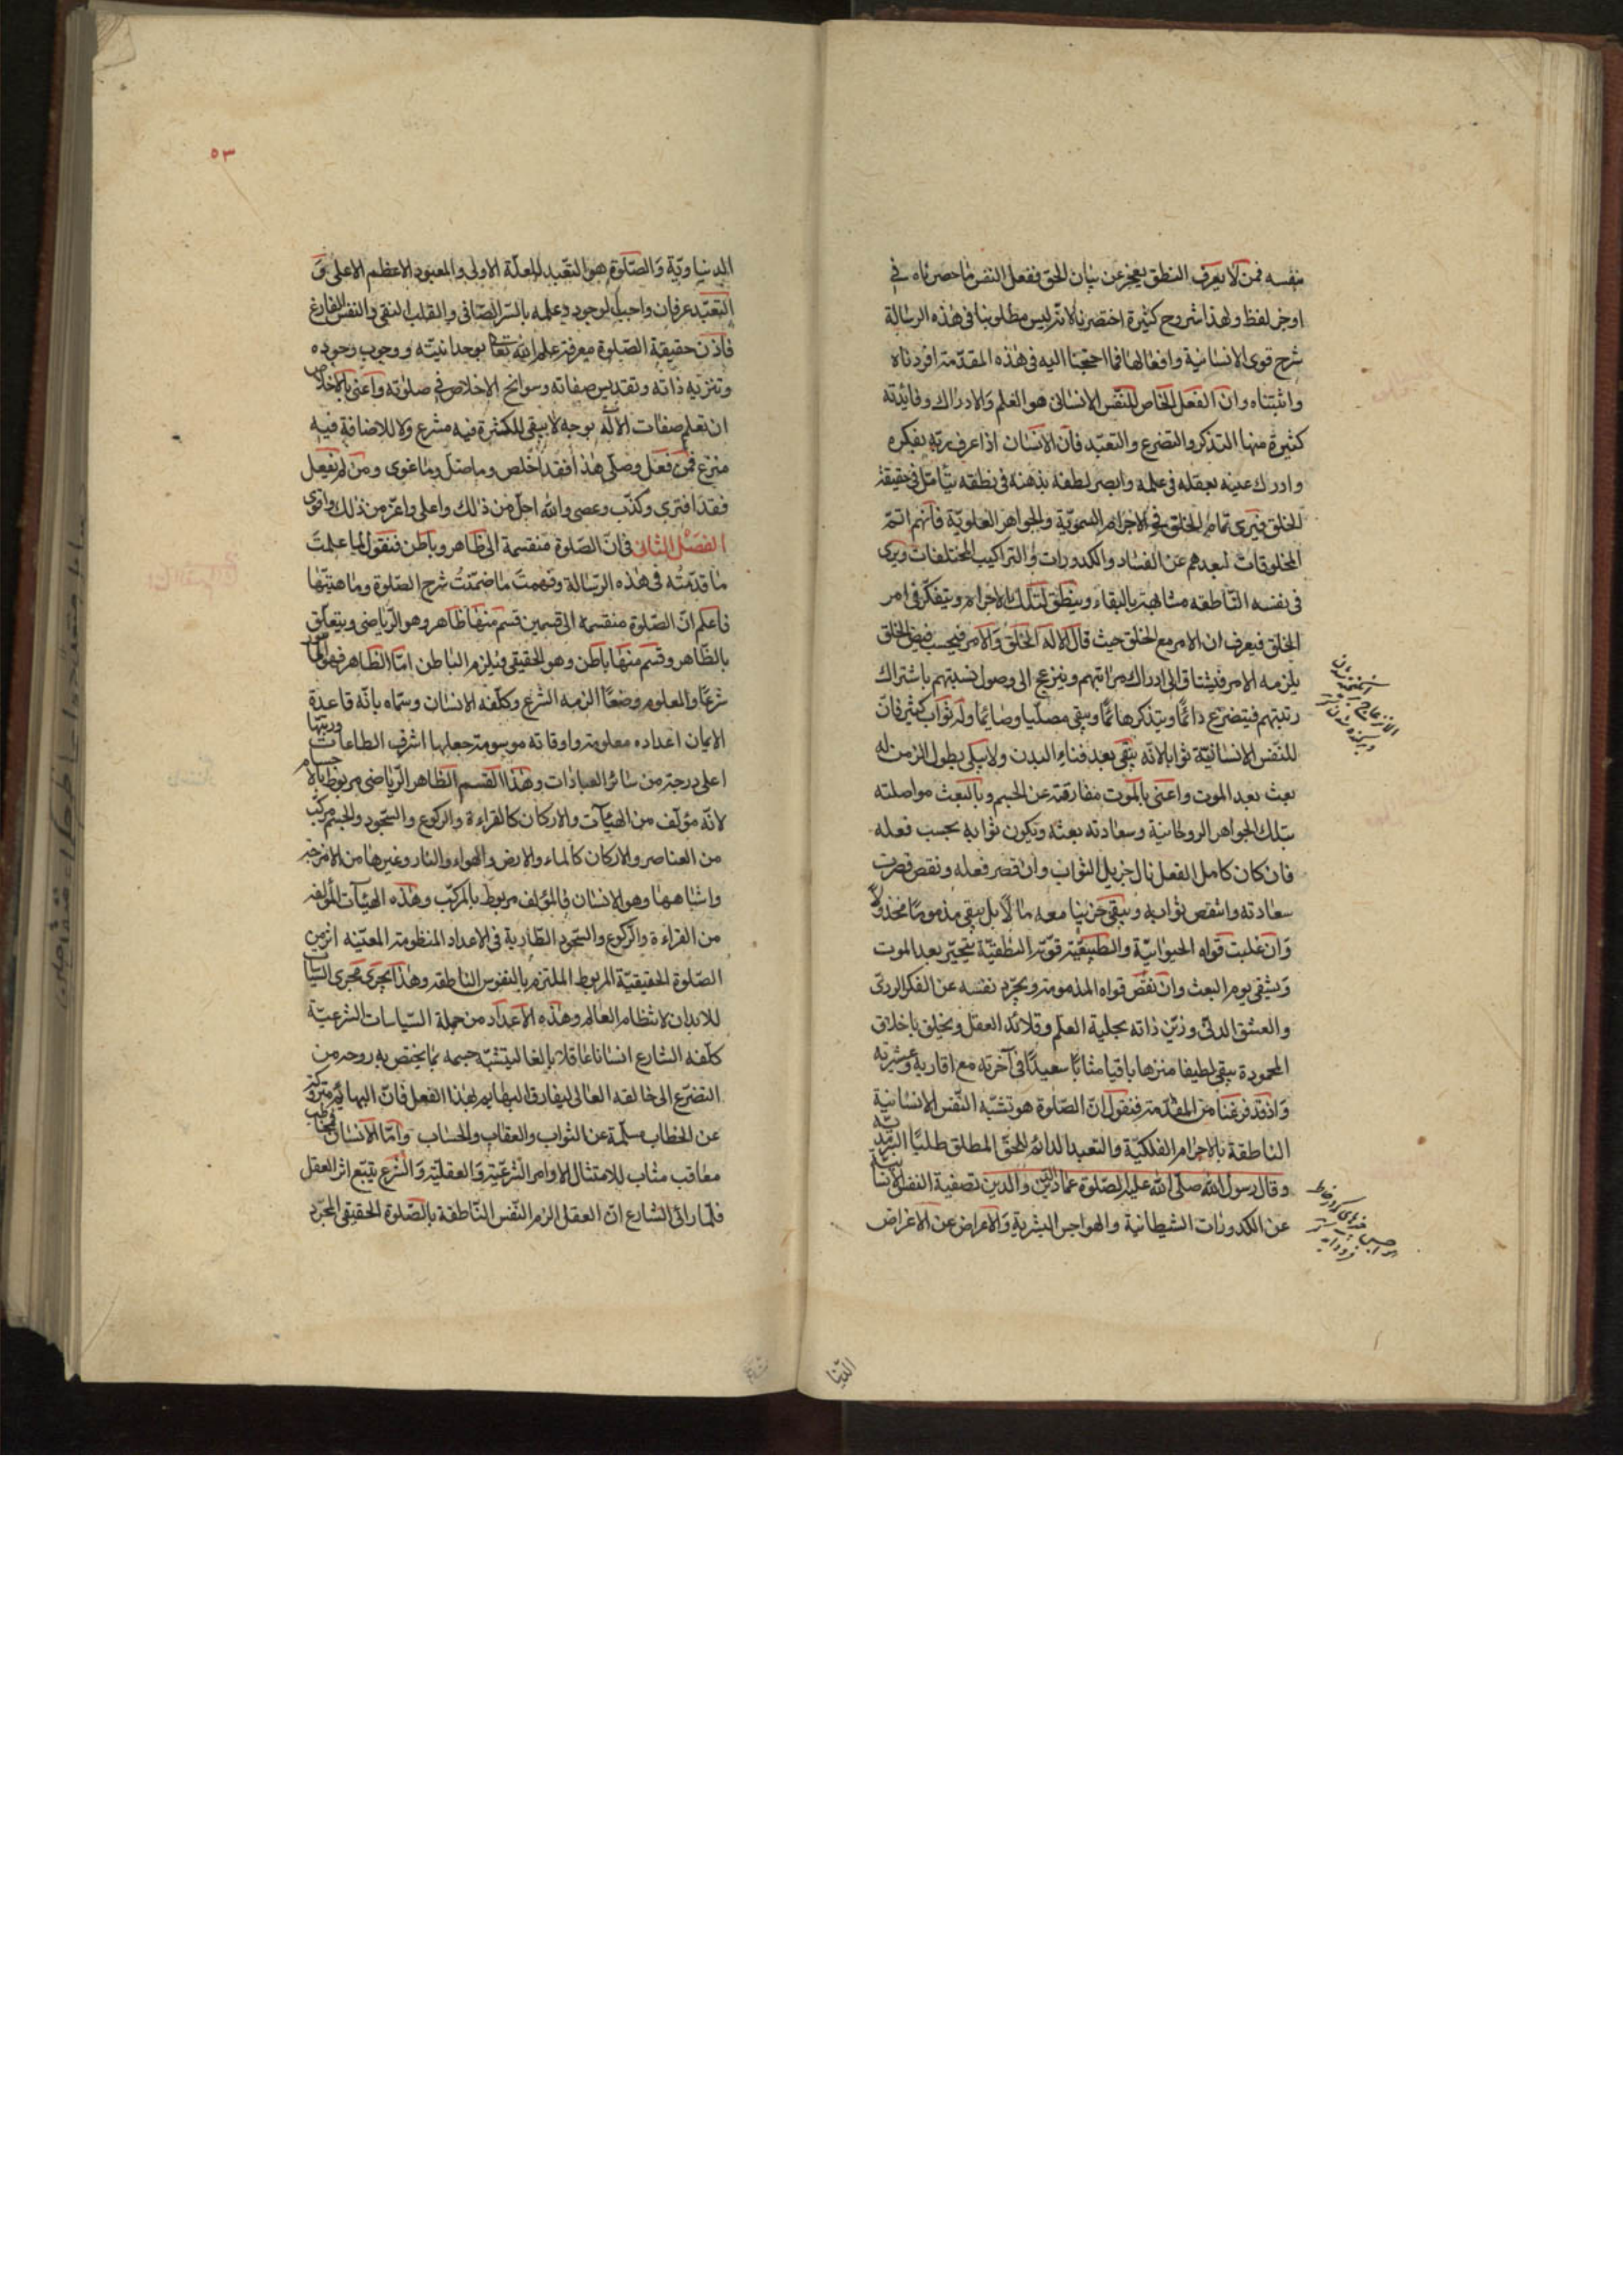 بنفسه فمن لا يعرف المنطق يعجز عن بيان الحق ففعل النفس ما حصرناه في
اوجز لفظ ولهذا شروح كثيرة اختصرنا لانه ليس مطلوبنا في هذه الرسالة
شرح قوى الانسانية وافعالها فما احتجنا اليه في هذه المقدمة افردناه
واثبتناه وان الفعل الخاص للنفس الانساني هو العلم والادراك وفائدته
كثيرة منها التذكر والتضرع والتعبد فان الانسان اذا عرف ربه بفكره
وادرك عينه بعقله في علمه وابصر لطفه بذهنه في نطقه يتأمل في حقيقة
الخلق فيرى تمام الخلق في الاجرام السموية والجواهر العلوية فانهم اتم
المخلوقات لبعدهم عن الفساد والكدورات والتراكيب المختلفات ويرى
في نفسه الناطقه مشابهة بالبقاء وينطق لتلك بالاجرام ويتفكر في امر
الخلق فيعرف ان الامر مع الخلق حيث قال الا له الخلق والامر فيحسب فيض الخلق
يلزمه الامر فيشتاق الى ادراك مراتبهم وينزعج الى وصول نسبتهم باشتراك
رتبتهم فيتضرع دائما ويتذكر هائما ويبقى مصليا وصائما وله ثواب كثير فان
للنفس الانسانية ثوابا لانه يبقى بعد فناء البدن ولا يبلى بطول الزمن له
بعث بعد الموت واعنى بالموت مفارقته عن الجسم وبالبعث مواصلته
بتلك الجواهر الروحانية وسعادته بعثه ويكون ثوابه بحسب فعله
فان كان كامل الفعل نال جزيل الثواب وان قصر فعله ونقص قصرت
سعادته وانتقص ثوابه ويبقى حزينا معه مالا بل يبقى مذموما مخذولا
وان غلبت قواه الحيوانية والطبيعية قوته النطقية يتحير بعد الموت
ويشقى يوم البعث وان نقص قواه المذمومة ويجرد نفسه عن الفكر الردى
والعشق الدنى وزين ذاته بحلية العلم وقلائد العقل وتخلق باخلاق
المحمودة يبقى لطيفا منزها باقيا مثابا سعيدا في آخرته مع اقاربه وعشيرته
واذ قد فرغنا من المقدمة فنقول ان الصلوة هو تشبه النفس الانسانية
الناطقة بالاجرام الفلكية والتعبد الدائم للحق المطلق طلبا
وقال رسول الله صلى الله عليه الصلوة عماد الدين والدين تصفية النفس الانسانية
عن الكدورات الشيطانية والهواجس البشرية والاعراض عن الاغراض
الدنيا
٥٣
الدنياوية والصلوة هو التعبد للعلة الاولى والمعبود الاعظم الاعلى و
التعبد عرفان واجب الوجود وعلمه بالسر الصافى والقلب النقى والنفس الفارغ
فاذن حقيقة الصلوة معرفة علم الله تعالى بوحدانيته ووجوب وجوده
وتنزيه ذاته وتقديس صفاته وسوانح الاخلاص في صلوته واعنى بالاخلاص
ان تعلم صفات الاله بوجه لا يبقى للكثرة فيه مشرع ولا للاضافة فيه
منزع فمن فعل وصلى هذا فقد اخلص وما ضل وما غوى ومن لم يفعل
فقد افترى وكذب وعصى والله اجل من ذلك واعلى واعز من ذلك واقوى
الفصل الثانى في ان الصلوة منقسمة الى ظاهر وباطن فنقول لما علمت
ما قدمته في هذه الرسالة وفهمت ما ضمنت شرح الصلوة وماهيتها
فاعلم ان الصلوة منقسمة الى قسمين قسم منها ظاهر وهو الرياضى ويتعلق
بالظاهر وقسم منها باطن وهو الحقيقى فيلزم الباطن اما الظاهر فهو المأمور
شرعا والمعلوم وضعا الزمه الشرع وكلفه الانسان وسماه بانه قاعدة
الايمان اعداده معلومة واوقاته موسومة جعلها اشرف الطاعات ورتبها
اعلى درجة من سائر العبادات وهذا القسم الظاهر الرياضى مربوط بالاجسام
لانه مؤلف من الهيآت والاركان كالقراءة والركوع والسجود والجسم مركب
من العناصر والاركان كالماء والارض والهواء والنار وغيرها من الامزجة
واشباهها وهو الانسان فالمؤلف مربوط بالمركب وهذه الهيآت المؤلفه
من القراءة والركوع والسجود الطارية في الاعداد المنظومة المعينه اثر من
الصلوة الحقيقية المربوط الملتزم بالنفوس الناطقه وهذا يجرى مجرى السياسات
للابدان لانتظام العالم وهذه الاعداد من جملة السياسات الشرعية
كلفه الشارع انسانا عاقلا بالغا ليتشبه جسمه بما يختص به روحه من
التضرع الى خالقه العالى ليفارق البهايم بهذا الفعل فان البهائم متروكة
عن الخطاب مسلمة عن الثواب والعقاب والحساب واما الانسان فمخاطب
معاقب مثاب للامتثال الاوامر الشرعية والعقلية والشرع يتبع اثر العقل
فلما رأى الشارع ان العقل الزم النفس الناطقة بالصلوة الحقيقى المجرد